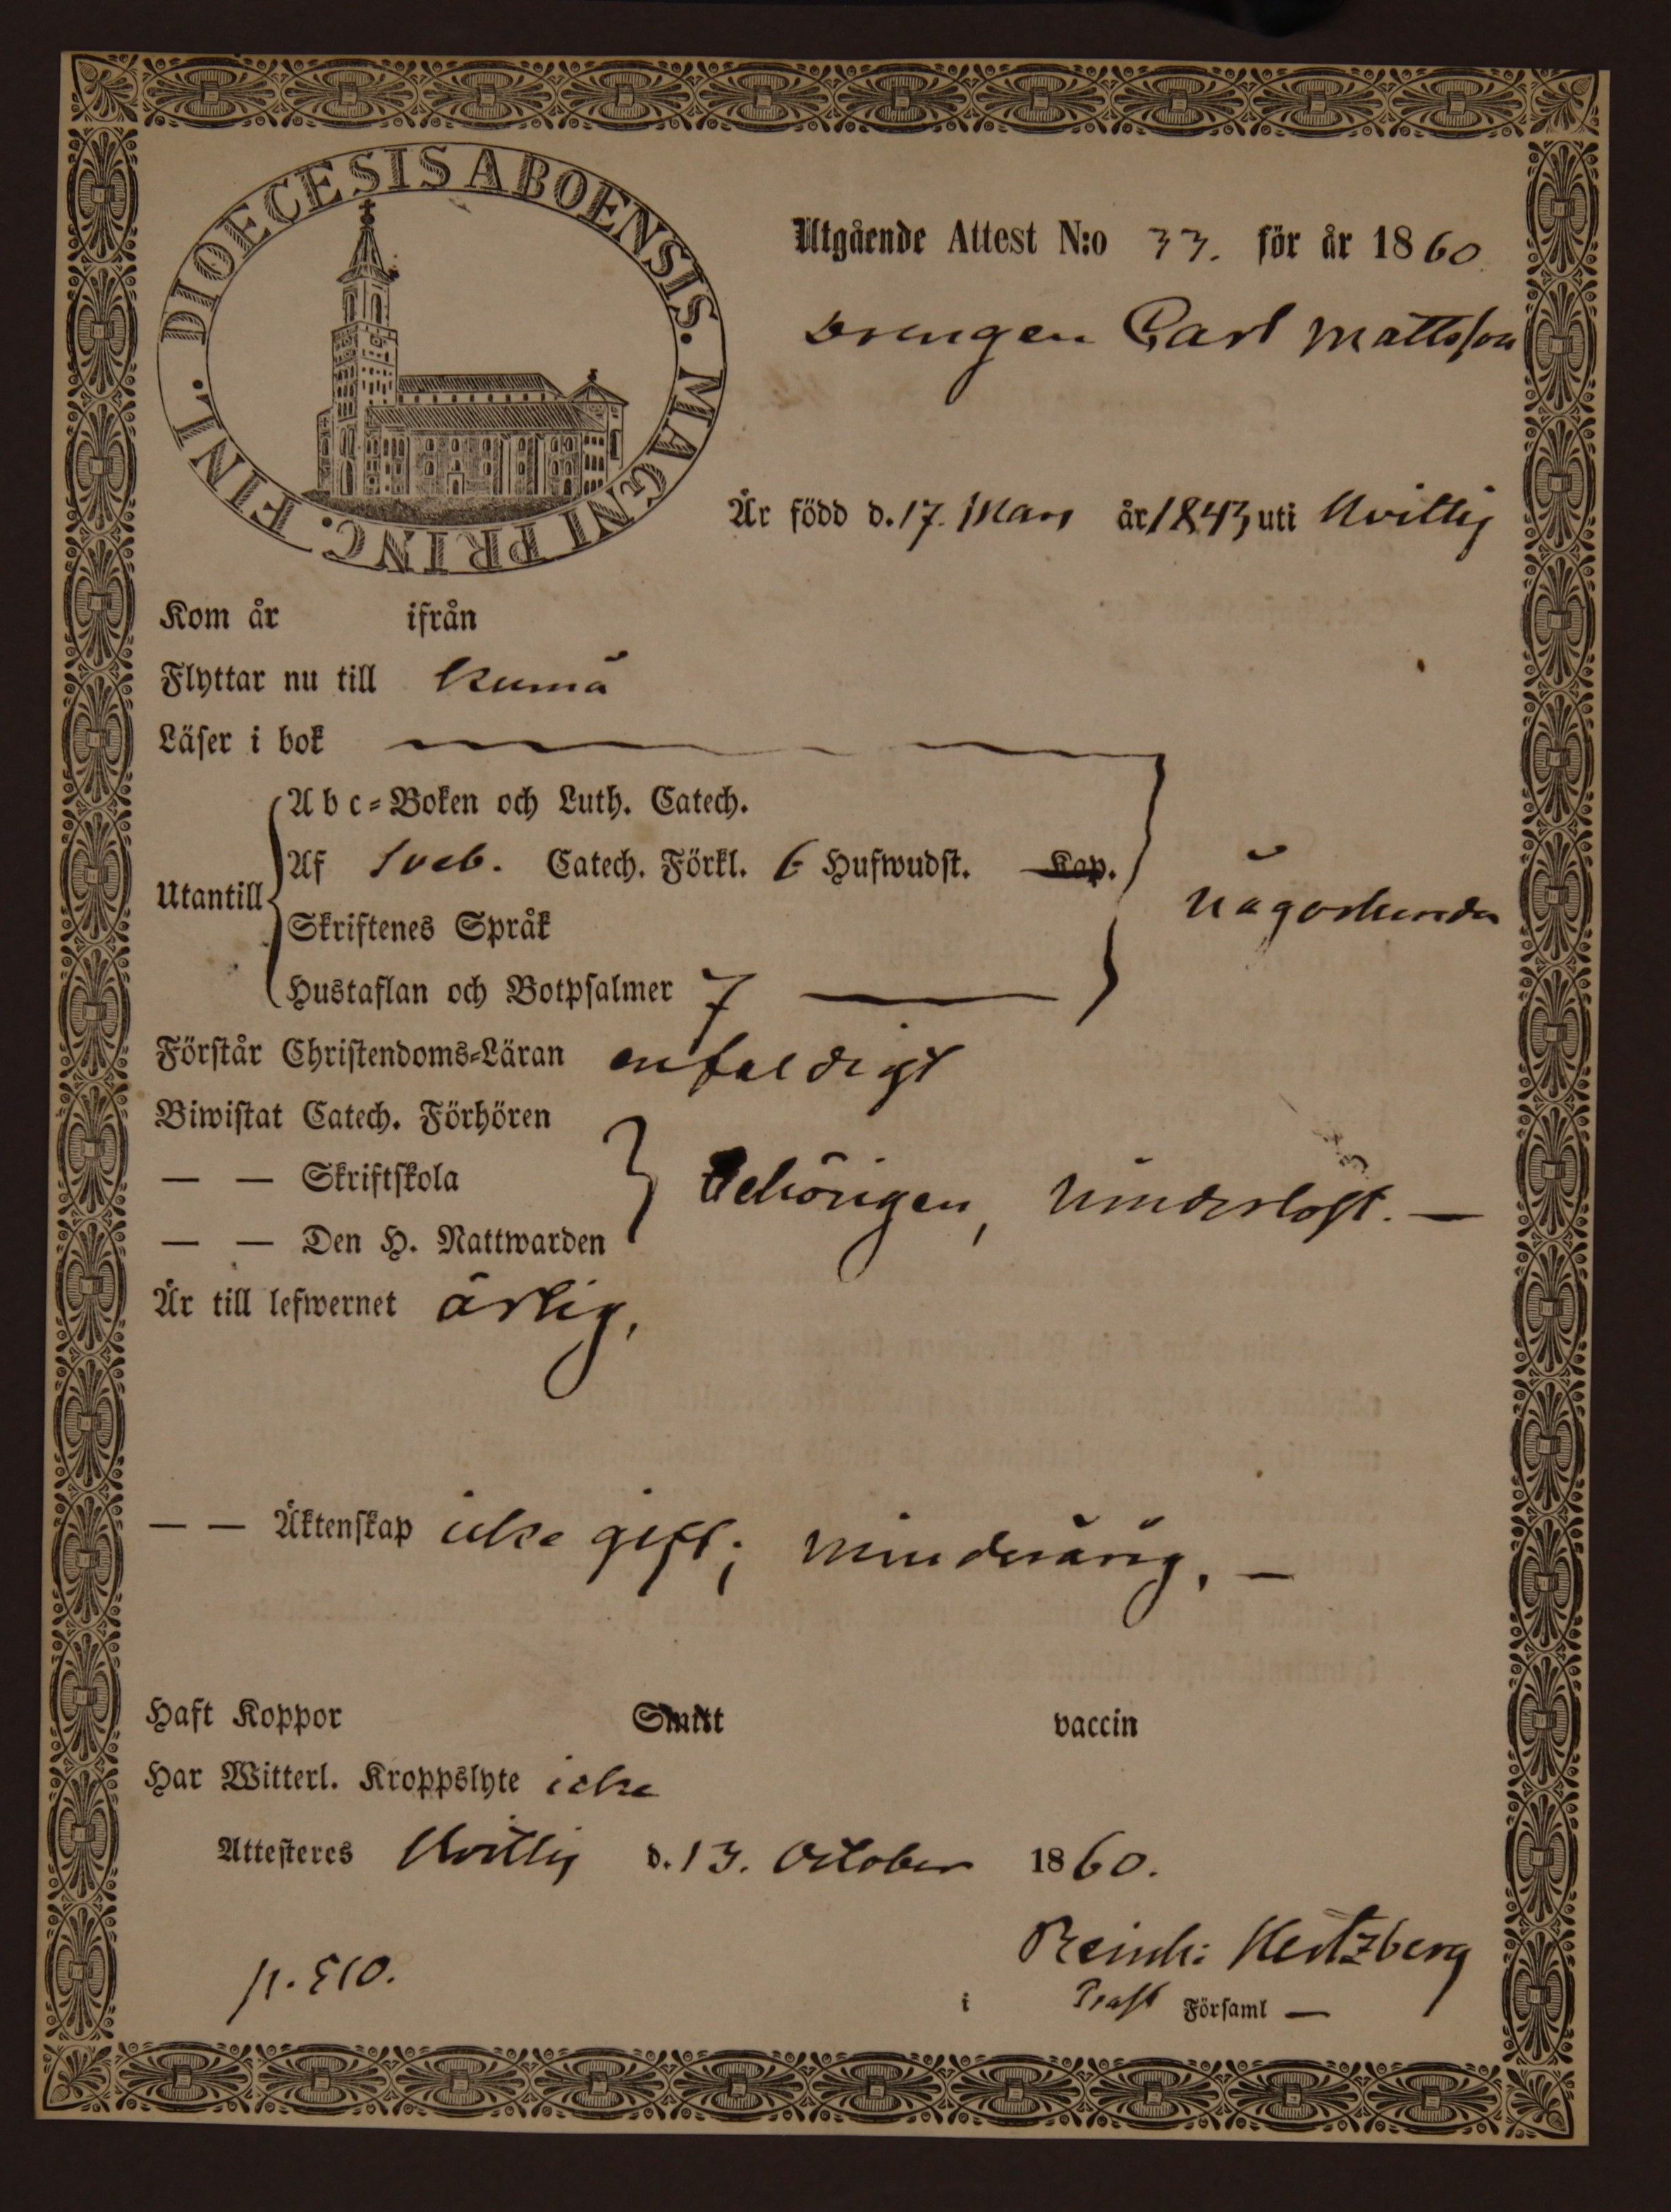 DIOECESIS ABOENSIS. MAGNI PRINC. FINL.
Utgående Attest N:o 33. för år 1860
Drengen Carl Mattsson
Är född d. 17. Mars år 1843 uti Hvittis
Kom år ifrån
Flyttar nu till Kumå
Läser i bok
Abc-Boken och Luth. Catech.
Utantill
Af Sveb. Catech. Förkl. 6 Hufwudst. Kap.
någorlunda
Skriftenes Språk
Hustaflan och Botpsalmer 7
Förstår Christendoms-Läran enfaldigt
Biwistat Catech. Förhören
— — Skriftskola
behörigen,
— — Den H. Nattwarden
Är till lefwernet ärlig,
— — Äktenskap icke gift; minderårig. —
Haft Koppor Smitt vaccin
Har Witterl. Kroppslyte icke
Attesteres Hvittis d. 13. October 1860.
Reinh: Hertzberg
p. 510.
i Prost Församl —